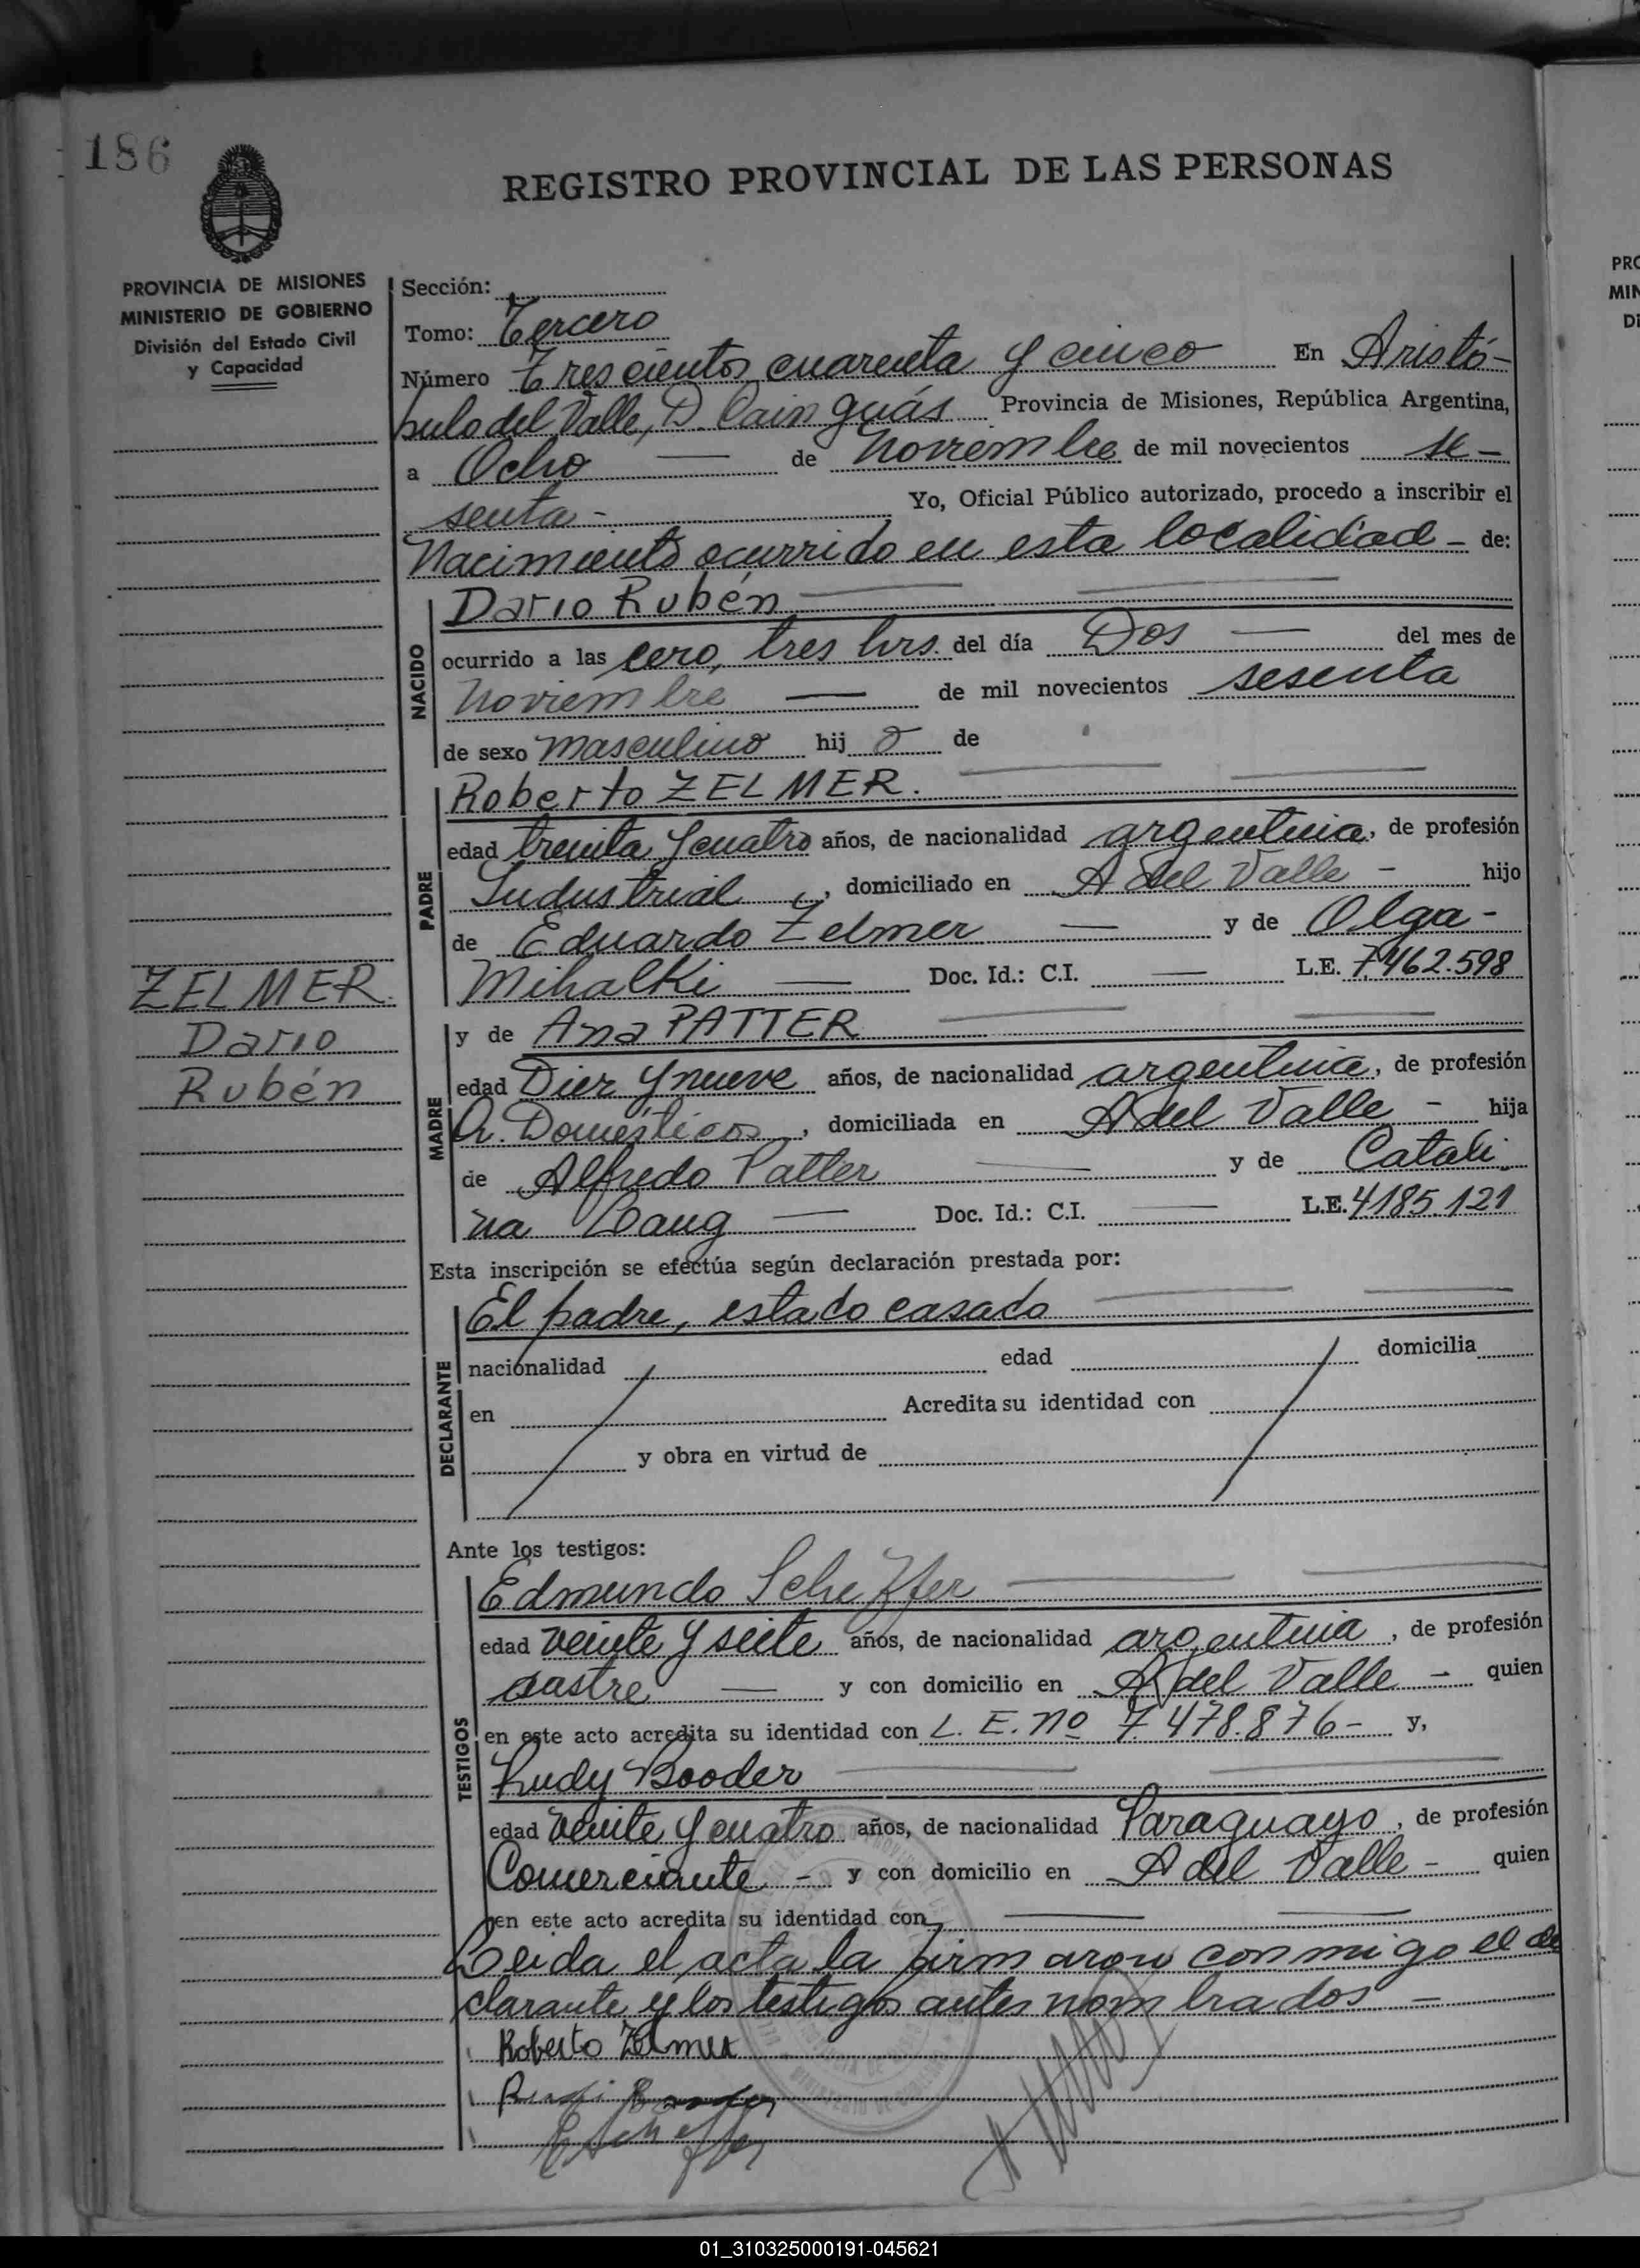 186
REGISTRO PROVINCIAL DE LAS PERSONAS
PROVINCIA DE MISIONES
MINISTERIO DE GOBIERNO
División del Estado Civil
y Capacidad
Sección:
Tomo: Tercero
Número Trescientos cuarenta y cinco En Aristó-
bulo del Valle, D. Cainguás Provincia de Misiones, República Argentina,
a Ocho — de Noviembre de mil novecientos se-
senta - Yo, Oficial Público autorizado, procedo a inscribir el
Nacimiento ocurrido en esta localidad - de:
NACIDO
Dario Rubén
ocurrido a las cero, tres hrs. del día Dos — del mes de
Noviembre — de mil novecientos sesenta
de sexo masculino hij o de
PADRE
Roberto ZELMER.
edad treinta y cuatro años, de nacionalidad argentina, de profesión
Industrial, domiciliado en A del Valle - hijo
de Eduardo Zelmer — y de Olga -
Mihalki — Doc. Id.: C.I. — L.E. 7.462.598
ZELMER
Dario
Rubén
MADRE
y de Ana PATTER
edad Diez y nueve años, de nacionalidad argentina, de profesión
Q. Domésticos, domiciliada en A del Valle - hija
de Alfredo Patter — y de Catali-
na Lang — Doc. Id.: C.I. — L.E. 4185.121
Esta inscripción se efectúa según declaración prestada por:
DECLARANTE
El padre, estado casado
nacionalidad edad domicilia
en Acredita su identidad con
y obra en virtud de
Ante los testigos:
TESTIGOS
Edmundo Scheffer
edad veinte y siete años, de nacionalidad argentina, de profesión
sastre — y con domicilio en A del Valle - quien
en este acto acredita su identidad con L. E. nº 7.478.876- y,
Rudy Booder
edad veinte y cuatro años, de nacionalidad Paraguayo, de profesión
Comerciante - y con domicilio en A del Valle - quien
en este acto acredita su identidad con
Leida el acta la firmaron conmigo el de
clarante y los testigos antes nombrados -
Roberto Zelmer
01_310325000191-045621